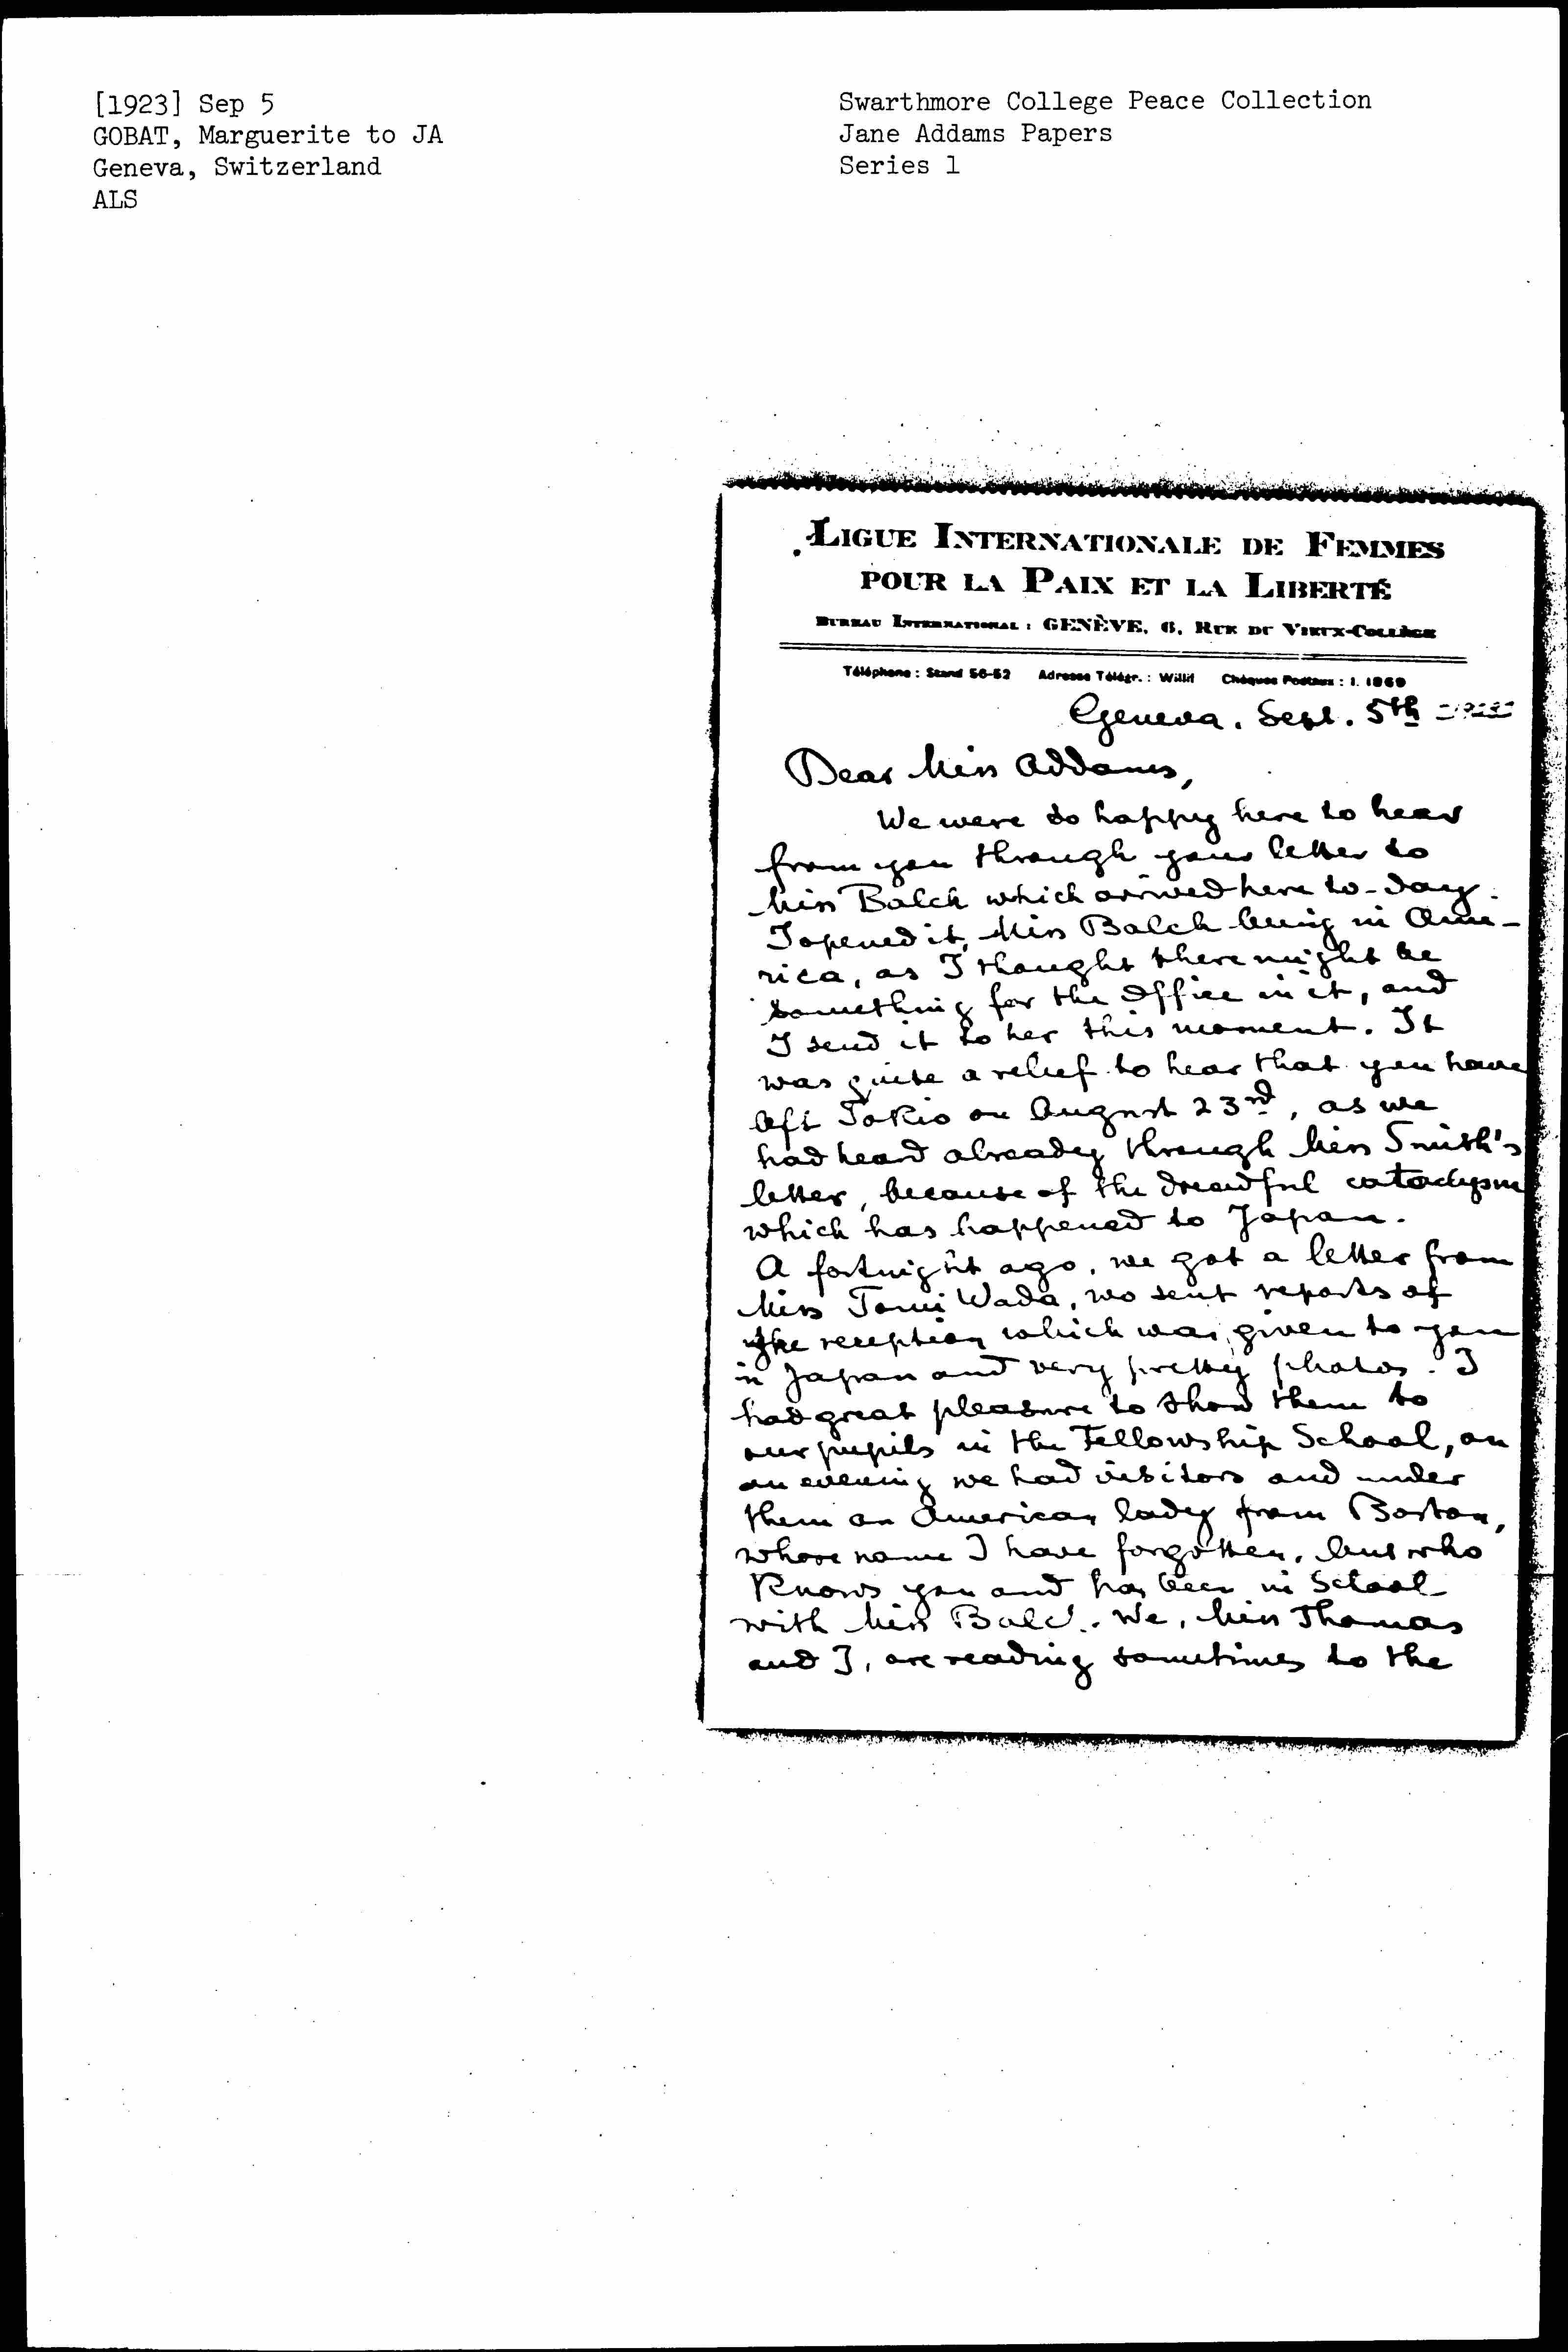 [1923] Sep 5
GOBAT, Marguerite to JA
Geneva, Switzerland
ALS
Swarthmore College Peace Collection
Jane Addams Papers
Series 1
LIGUE INTERNATIONALE DE FEMMES
POUR LA PAIX ET LA LIBERTÉ
BUREAU INTERNATIONAL : GENÈVE, 6, RUE DU VIEUX-COLLÈGE
Téléphone : Stand 56-52 Adresse Télégr. : Willif Chèques Postaux : I. 1869
Geneva. Sept. 5th
Dear Miss Addams,
We were so happy here to hear
from you through your letter to
Miss Balch which arrived here to-day.
I opened it, Miss Balch being in Ame-
rica, as I thought there might be
something for the Office in it, and
I send it to her this moment. It
was quite a relief to hear that you have
left Tokio on August 23rd, as we
had heard already through Miss Smith's
letter, because of the dreadful cataclysme
which has happened to Japan.
A fortnight ago, we got a letter from
Miss Tomi Wada, wo sent reports of
the reception which was given to you
in Japan and very pretty photos. I
had great pleasure to show them to
our pupils in the Fellowship School, on
an evening we had visitors and under
them an American lady from Boston,
whose name I have forgotten, but who
knows you and has been in School
with Miss Balch. We, Miss Thomas
and I, are reading sometimes to the